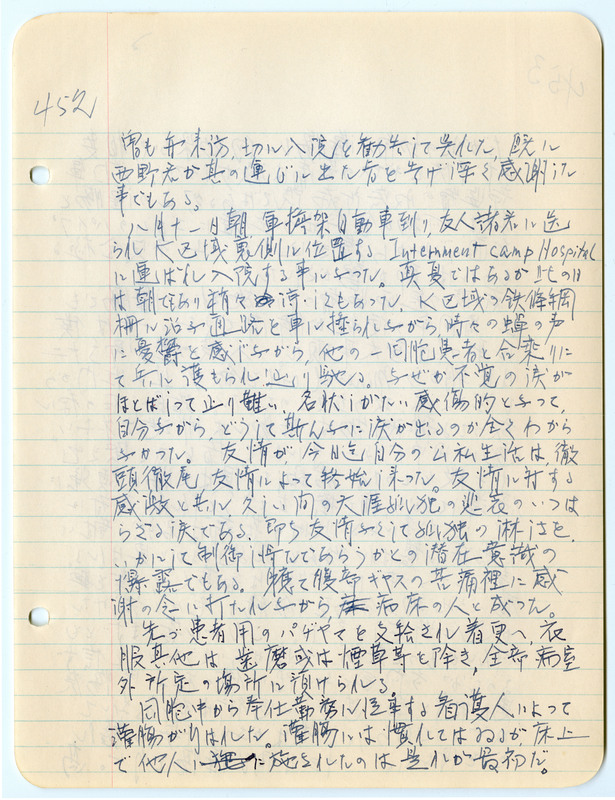 452
曽も亦来訪、切に入院を勧告して呉れた、既に
西野君が其の運びに出た旨を告げ深く感謝した
事でもある。
八月十一日朝、軍擔架自動車到り、友人諸君に送
られ K区域裏側に位置する Internment camp Hospital
に運ばれ入院する事になった。真夏ではあるが此の日
は朝でもあり稍々涼しくもあった、K区域の鉄條網
柵に沿う通路を車に揺られながら、時々の蝉の声
に憂欝を感じながら、他の一同胞患者と合乗りに
て兵に護もられ、辷り馳る。なぜか不覚の涙が
ほとばしって止り難い、名状しがたい感傷的となって、
自分ながら、どうして斯んなに涙が出るのか全くわから
なかった。友情が、今日迄自分の公私生活は徹
頭徹尾、友情によって終始し来った。友情に対する
感激と共に、久しい間の天涯孤独の悲哀のいつは
らざる涙である。即ち友情なくして孤独の淋しさを、
いかにして制御し得たであらうかとの潜在意識の
爆露でもある。軈て腹部ギヤスの苦痛裡に感
謝の念に打たれながら病床の人と成った。
先づ患者用のパヂヤマを支給され着更へ、衣
服其他は歯磨或は煙草等を除き、全部病室
外所定の場所に預けられる。
同胞中から奉仕勤務に従事する看護人によって
灌腸が行はれた。灌腸には慣れてはゐるが、床上
で他人に施されたのは是れが最初だ。